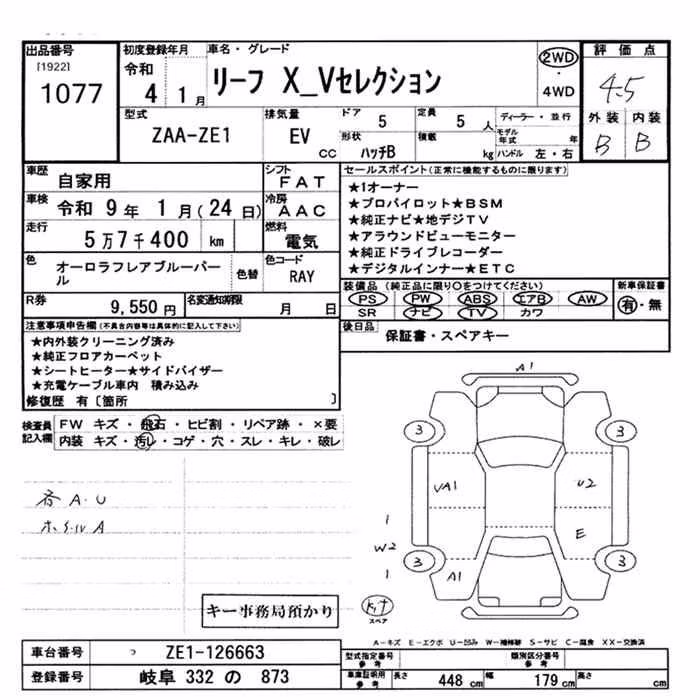 出品番号
[1922]
1077
初度登録年月
令和 4 1月
車名・グレード
リーフ X_Vセレクション
2WD
・
4WD
評価点
4.5
外装 内装
B B
型式
ZAA-ZE1
排気量
EV cc
ドア 5
定員 5人
形状 ハッチB
積載 kg
ディーラー・並行
モデル年式 年
ハンドル 左・右
車歴 自家用
シフト FAT
車検 令和 9年 1月(24日)
冷房 AAC
走行 5万7千400 km
燃料 電気
色 オーロラフレアブルーパール
色替
色コード RAY
R券 9,550円
名変通知期限 月 日
セールスポイント(正常に機能するものに限ります)
★1オーナー
★プロパイロット★BSM
★純正ナビ★地デジTV
★アラウンドビューモニター
★純正ドライブレコーダー
★デジタルインナー★ETC
装備品(純正品に限り○をつけてください)
PS PW ABS エアB AW
SR ナビ TV カワ
新車保証書
有・無
後日品 保証書・スペアキー
注意事項申告欄(不具合内容等は具体的に記入して下さい)
★内外装クリーニング済み
★純正フロアカーペット
★シートヒーター★サイドバイザー
★充電ケーブル車内 積み込み
修復歴 有〔箇所 〕
検査員記入欄
FW キズ・飛石・ヒビ割・リペア跡・×要
内装 キズ・汚レ・コゲ・穴・スレ・キレ・破レ
各A・U
ホイールA
A1
3
3
VA1
U2
1
W2
1
E
3
3
A1
キット
スペア
キー事務局預かり
A-キズ E-エクボ U-凹み W-補修跡 S-サビ C-腐食 XX-交換済
車台番号 ZE1-126663
登録番号 岐阜 332 の 873
型式指定番号 参考
類別区分番号 参考
車庫証明用参考 長さ 448cm 幅 179cm 高さ cm